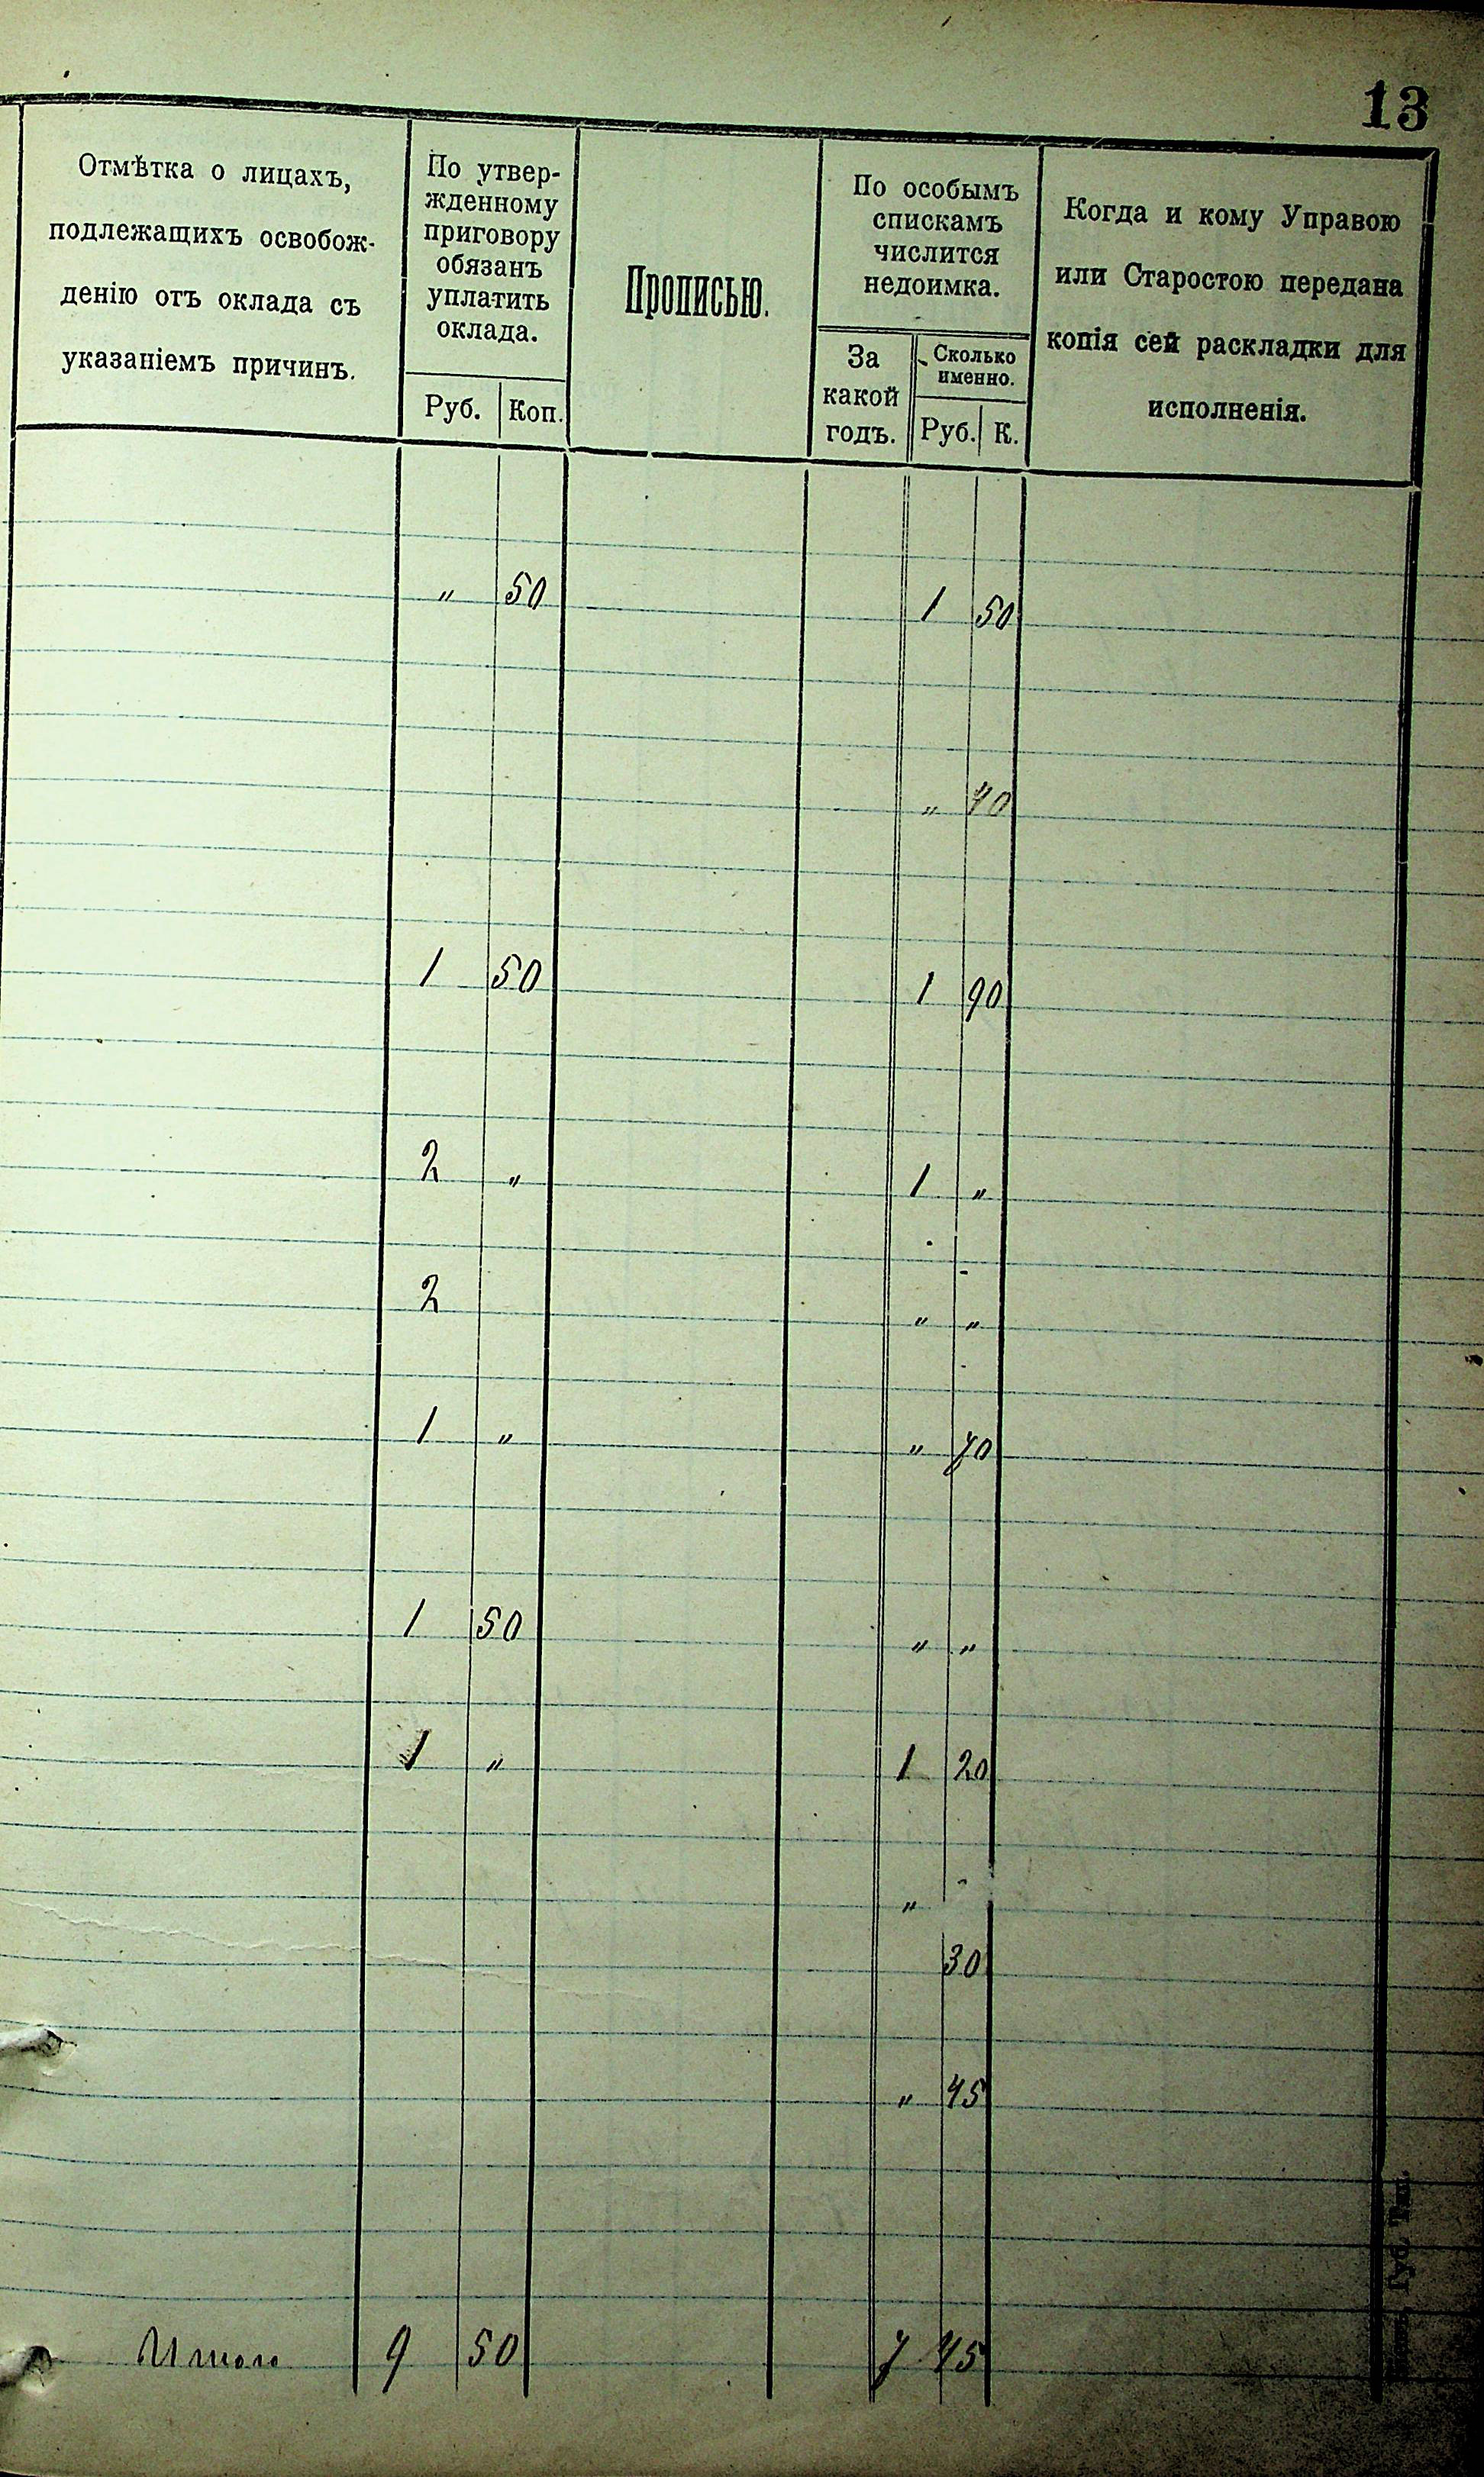 13
Отмѣтка о лицахъ,
подлежащихъ освобож-
денію отъ оклада съ
указаніемъ причинъ.
По утвер-
жденному
приговору
обязанъ
уплатить
оклада.
Руб. Коп.
Прописью.
По особымъ
спискамъ
числится
недоимка.
За
какой
годъ.
Сколько
именно.
Руб. К.
Когда и кому Управою
или Старостою передана
копія сей раскладки для
исполненія.
" 50 1 50
" 40
1 50 1 90
2 " 1 "
2 " "
1 " " 70
1 50 " "
1 " 1 20
"
30
" 45
Итого 9 50 7 45
Губ. Тип.